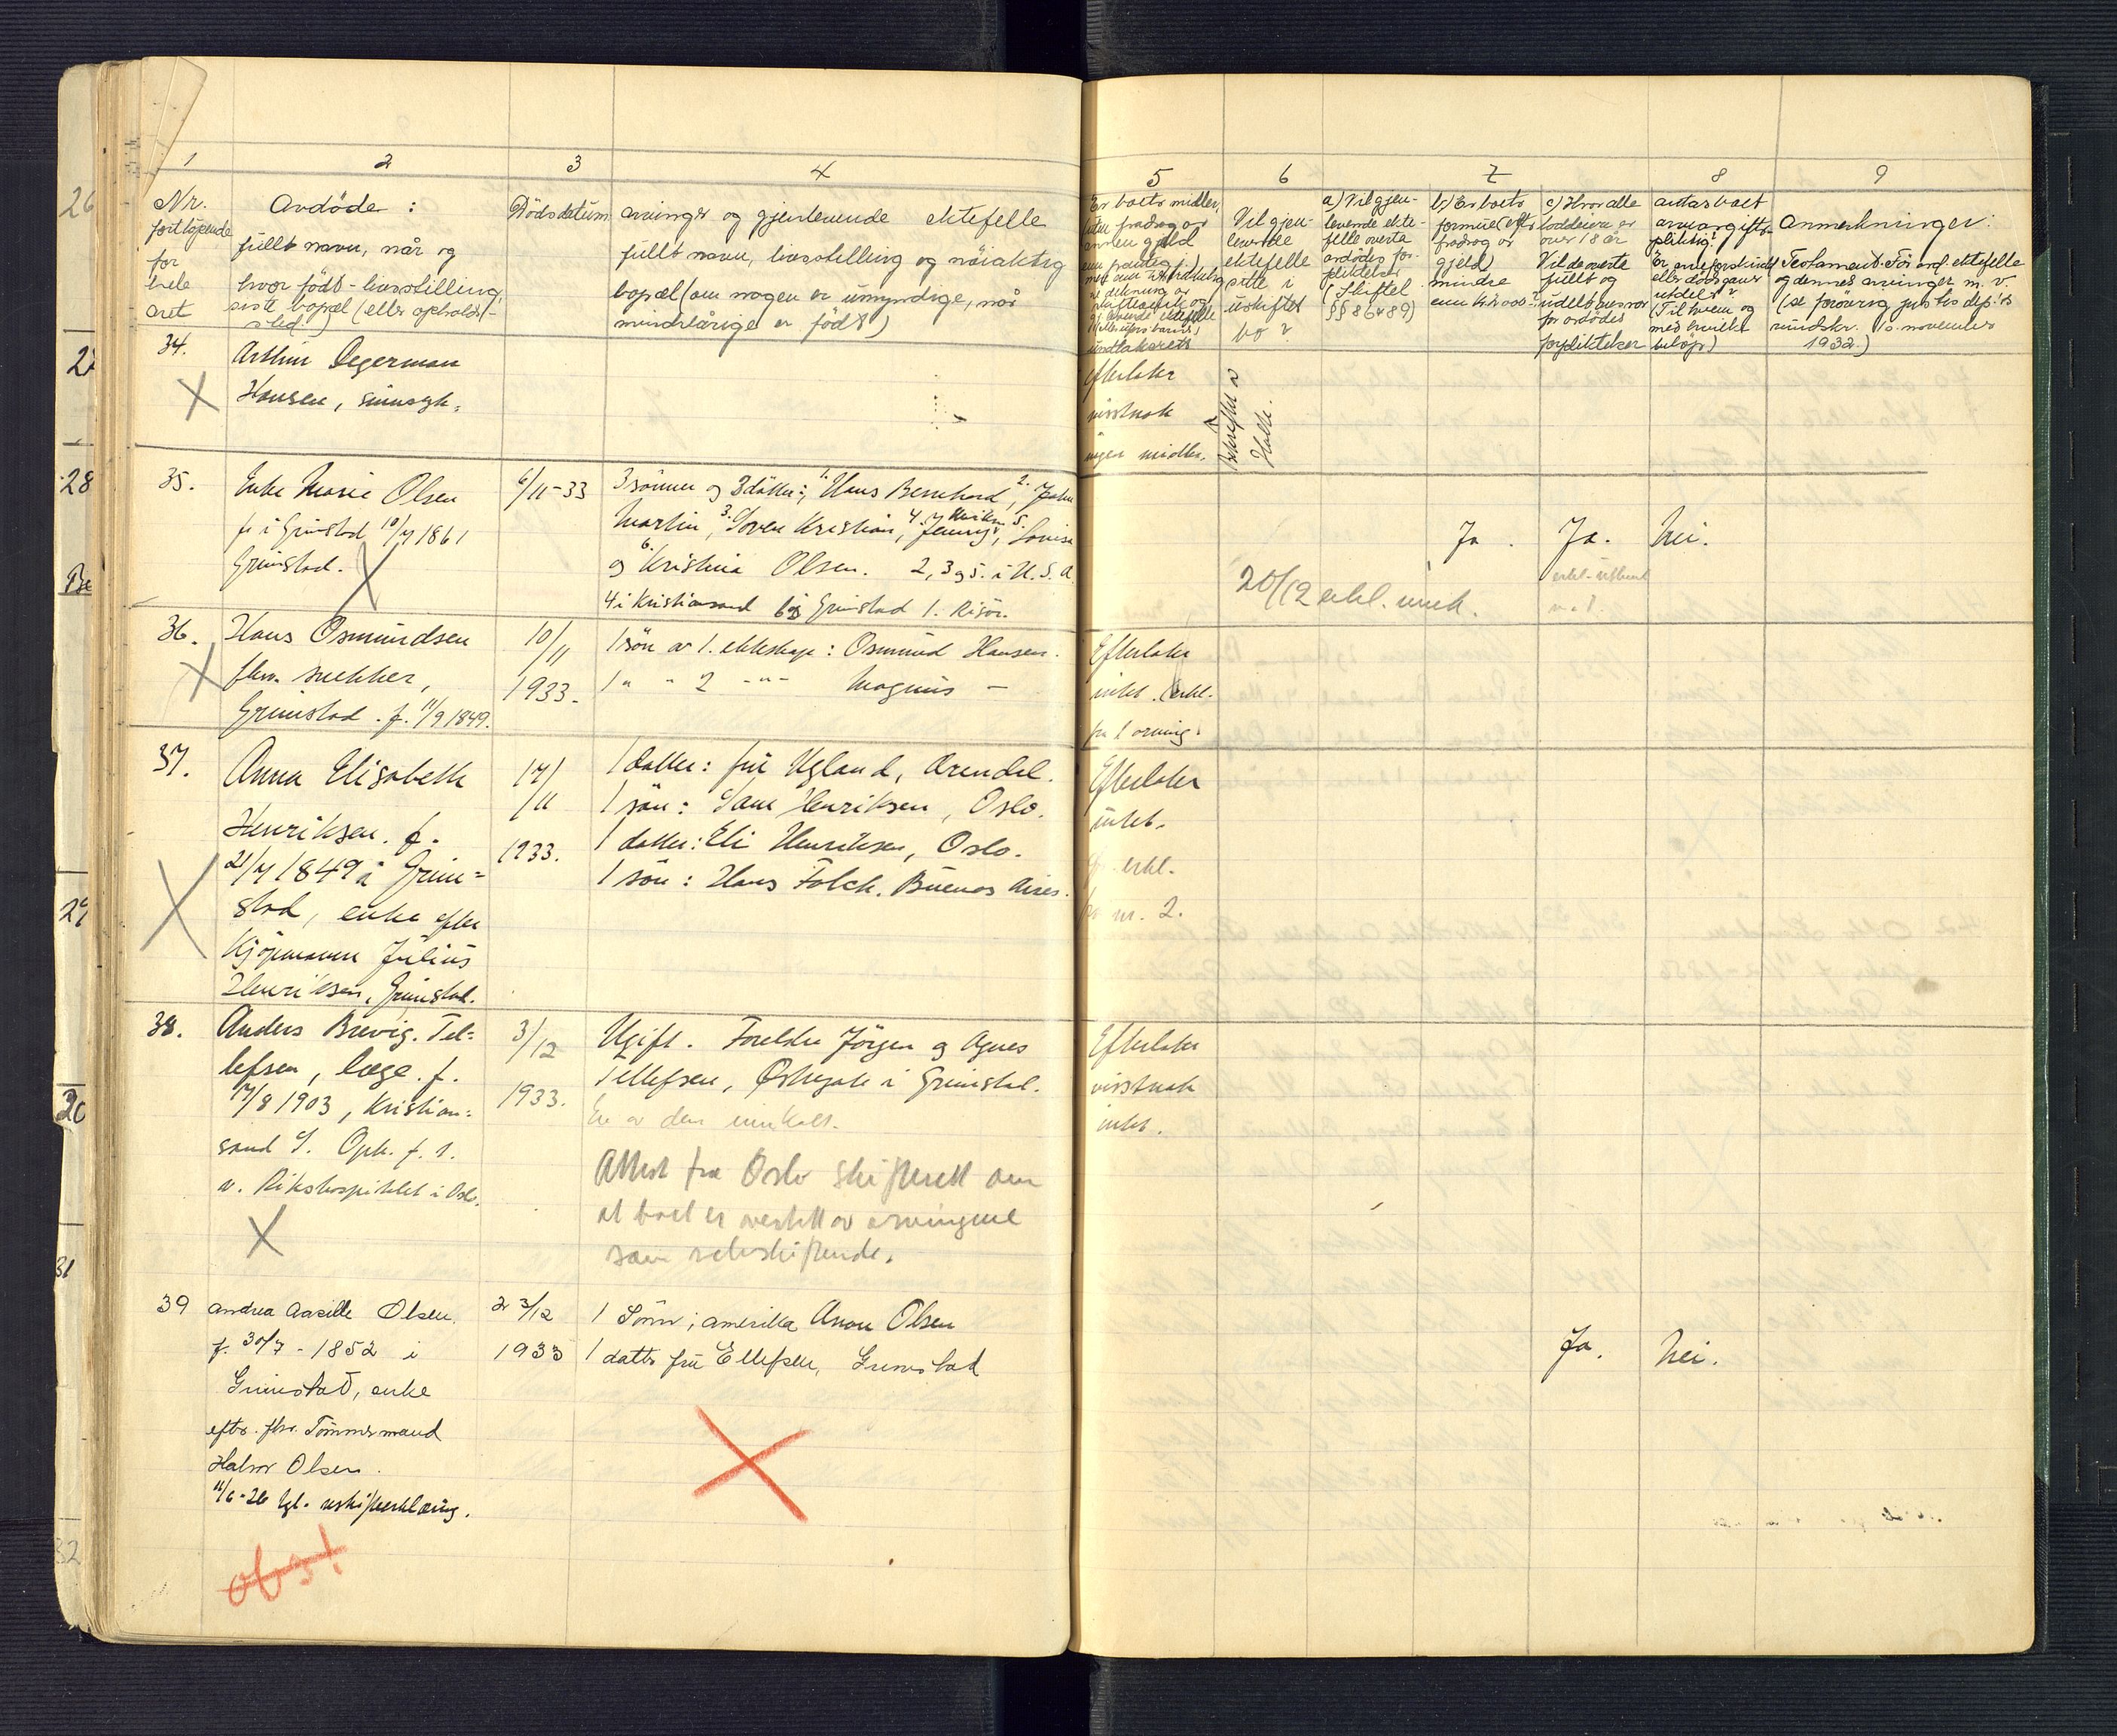 1 2 3 4 5 6 7 8 9
Nr.
fortlöpende
for
hele
året
Avdöde :
fullt navn, når og
hvor født - livsstilling,
siste bopæl (eller opholds-
sted)
Dödsdatum
arvinger og gjenlevende ektefelle
fullt navn, livsstilling og nöiaktig
bopæl (om nogen er umyndige, når
mindreårige er född)
Er boets midler,
uten fradrag av
gjeld
Vil gjen-
levende
ektefelle
sitte i
uskiftet
bo?
a) Vil gjen-
levende ekte-
felle overta
avdødes for-
pliktelser
(Skiftel
§§ 86 & 89)
b) Er boets
formue (efter
fradrag av
gjeld)
mindre
enn
c) Hvor alle
loddeiere er
over 18 år
Vil de overta
fullt og
udelt ansvar
for avdødes
forpliktelser
boet
arveavgifts-
pliktig?
Er arveforskudd
eller dødsgaver
utdelt?
(Til hvem og
med hvilke
beløp)
Anmerkninger:
Testament. For. ektefelle
og dennes arvinger m. v.
(se forøvrig just. dep.'s
rundskr. 10. november
1932.)
34.
Arthur Segerman
Hansen, sinnsyk.
Efterlater
visstnok
ingen midler.
35.
Enke Marie Olsen
f. i Grimstad 10/7 1861
Grimstad.
6/11-33
3 sönner og 3 døtre: 1. Hans Bernhard, 2. John
Martin, 3. Soren Kristian, 4. Jenny, 5. Lovise
og 6. Kristina Olsen. 2, 3 og 5. i U.S.A.
4 i Kristiansand 6 i Grimstad 1. Risör.
Ja. Ja. Nei.
20/12 erkl. innk.
36.
Hans Osmundsen
fhv. snekker,
Grimstad. f. 11/9 1849.
10/11
1933.
1 sön av 1. ekteskap: Osmund Hansen.
1 " " 2 - " - Magnus -
Efterlater
intet. (erkl.
fra 1 arving.
37.
Anna Elisabeth
Henriksen. f.
21/7 1849 i Grim=
stad, enke efter
Kjöpmann Julius
Henriksen, Grimstad.
17/11
1933.
1 datter: fru Ugland, Arendal.
1 sön: Sam Henriksen, Oslo.
1 datter: Eli Henriksen, Oslo.
1 sön: Hans Falck. Buenos Aires.
Efterlater
intet.
erkl.
nr. 2.
38.
Anders Brevig. Tel=
lefsen, læge. f.
17/8 1903, Kristian=
sand S. Oph. f. t.
v. Rikshospitalet i Oslo.
3/12
1933.
Ugift. Foreldre Jörgen og Agnes
Tellefsen, Østregate i Grimstad.
En av dem innkalt.
Attest fra Oslo skifterett om
at boet er overtatt av arvingene
som selvskiftende.
Efterlater
visstnok
intet.
39
Andrea Aasille Olsen.
f. 30/7 - 1852 i
Grimstad, enke
efter. fhv. Tömmermand
Halvor Olsen.
11/6-26 tgl. uskifteerklæring.
obs!
3/12
1933
1 Sönn i amerika Anon Olsen
1 datter fru Ellefsen, Grimstad
Ja. Nei.
26
28
29
31
32